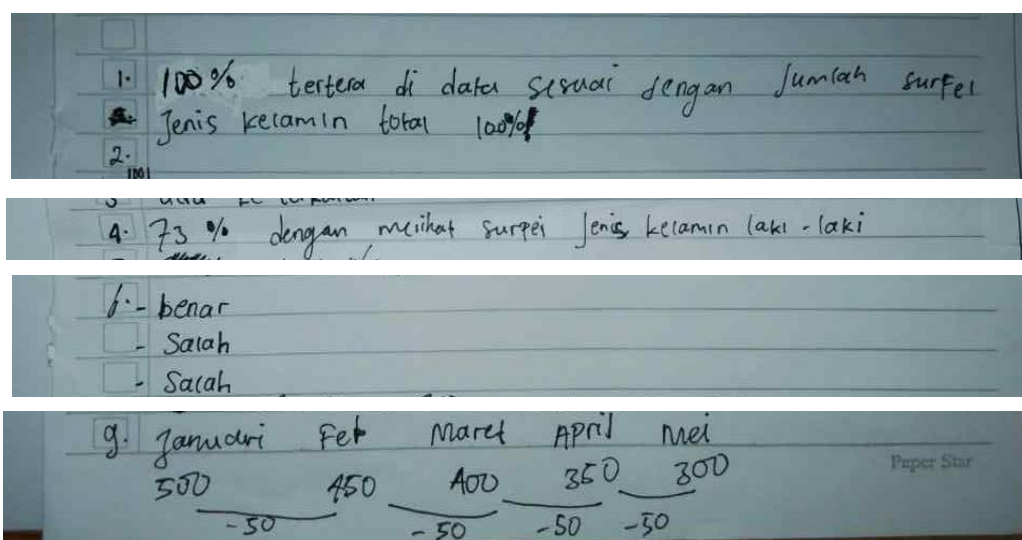 1. 100% tertera di data sesuai dengan Jumlah surfei
Jenis kelamin total 100%
2.
1001
4. 73 % dengan melihat surpei Jenis kelamin laki - laki
- benar
- Salah
- Salah
g. Januari Feb Maret April Mei
Paper Star
500 450 400 350 300
-50 -50 -50 -50